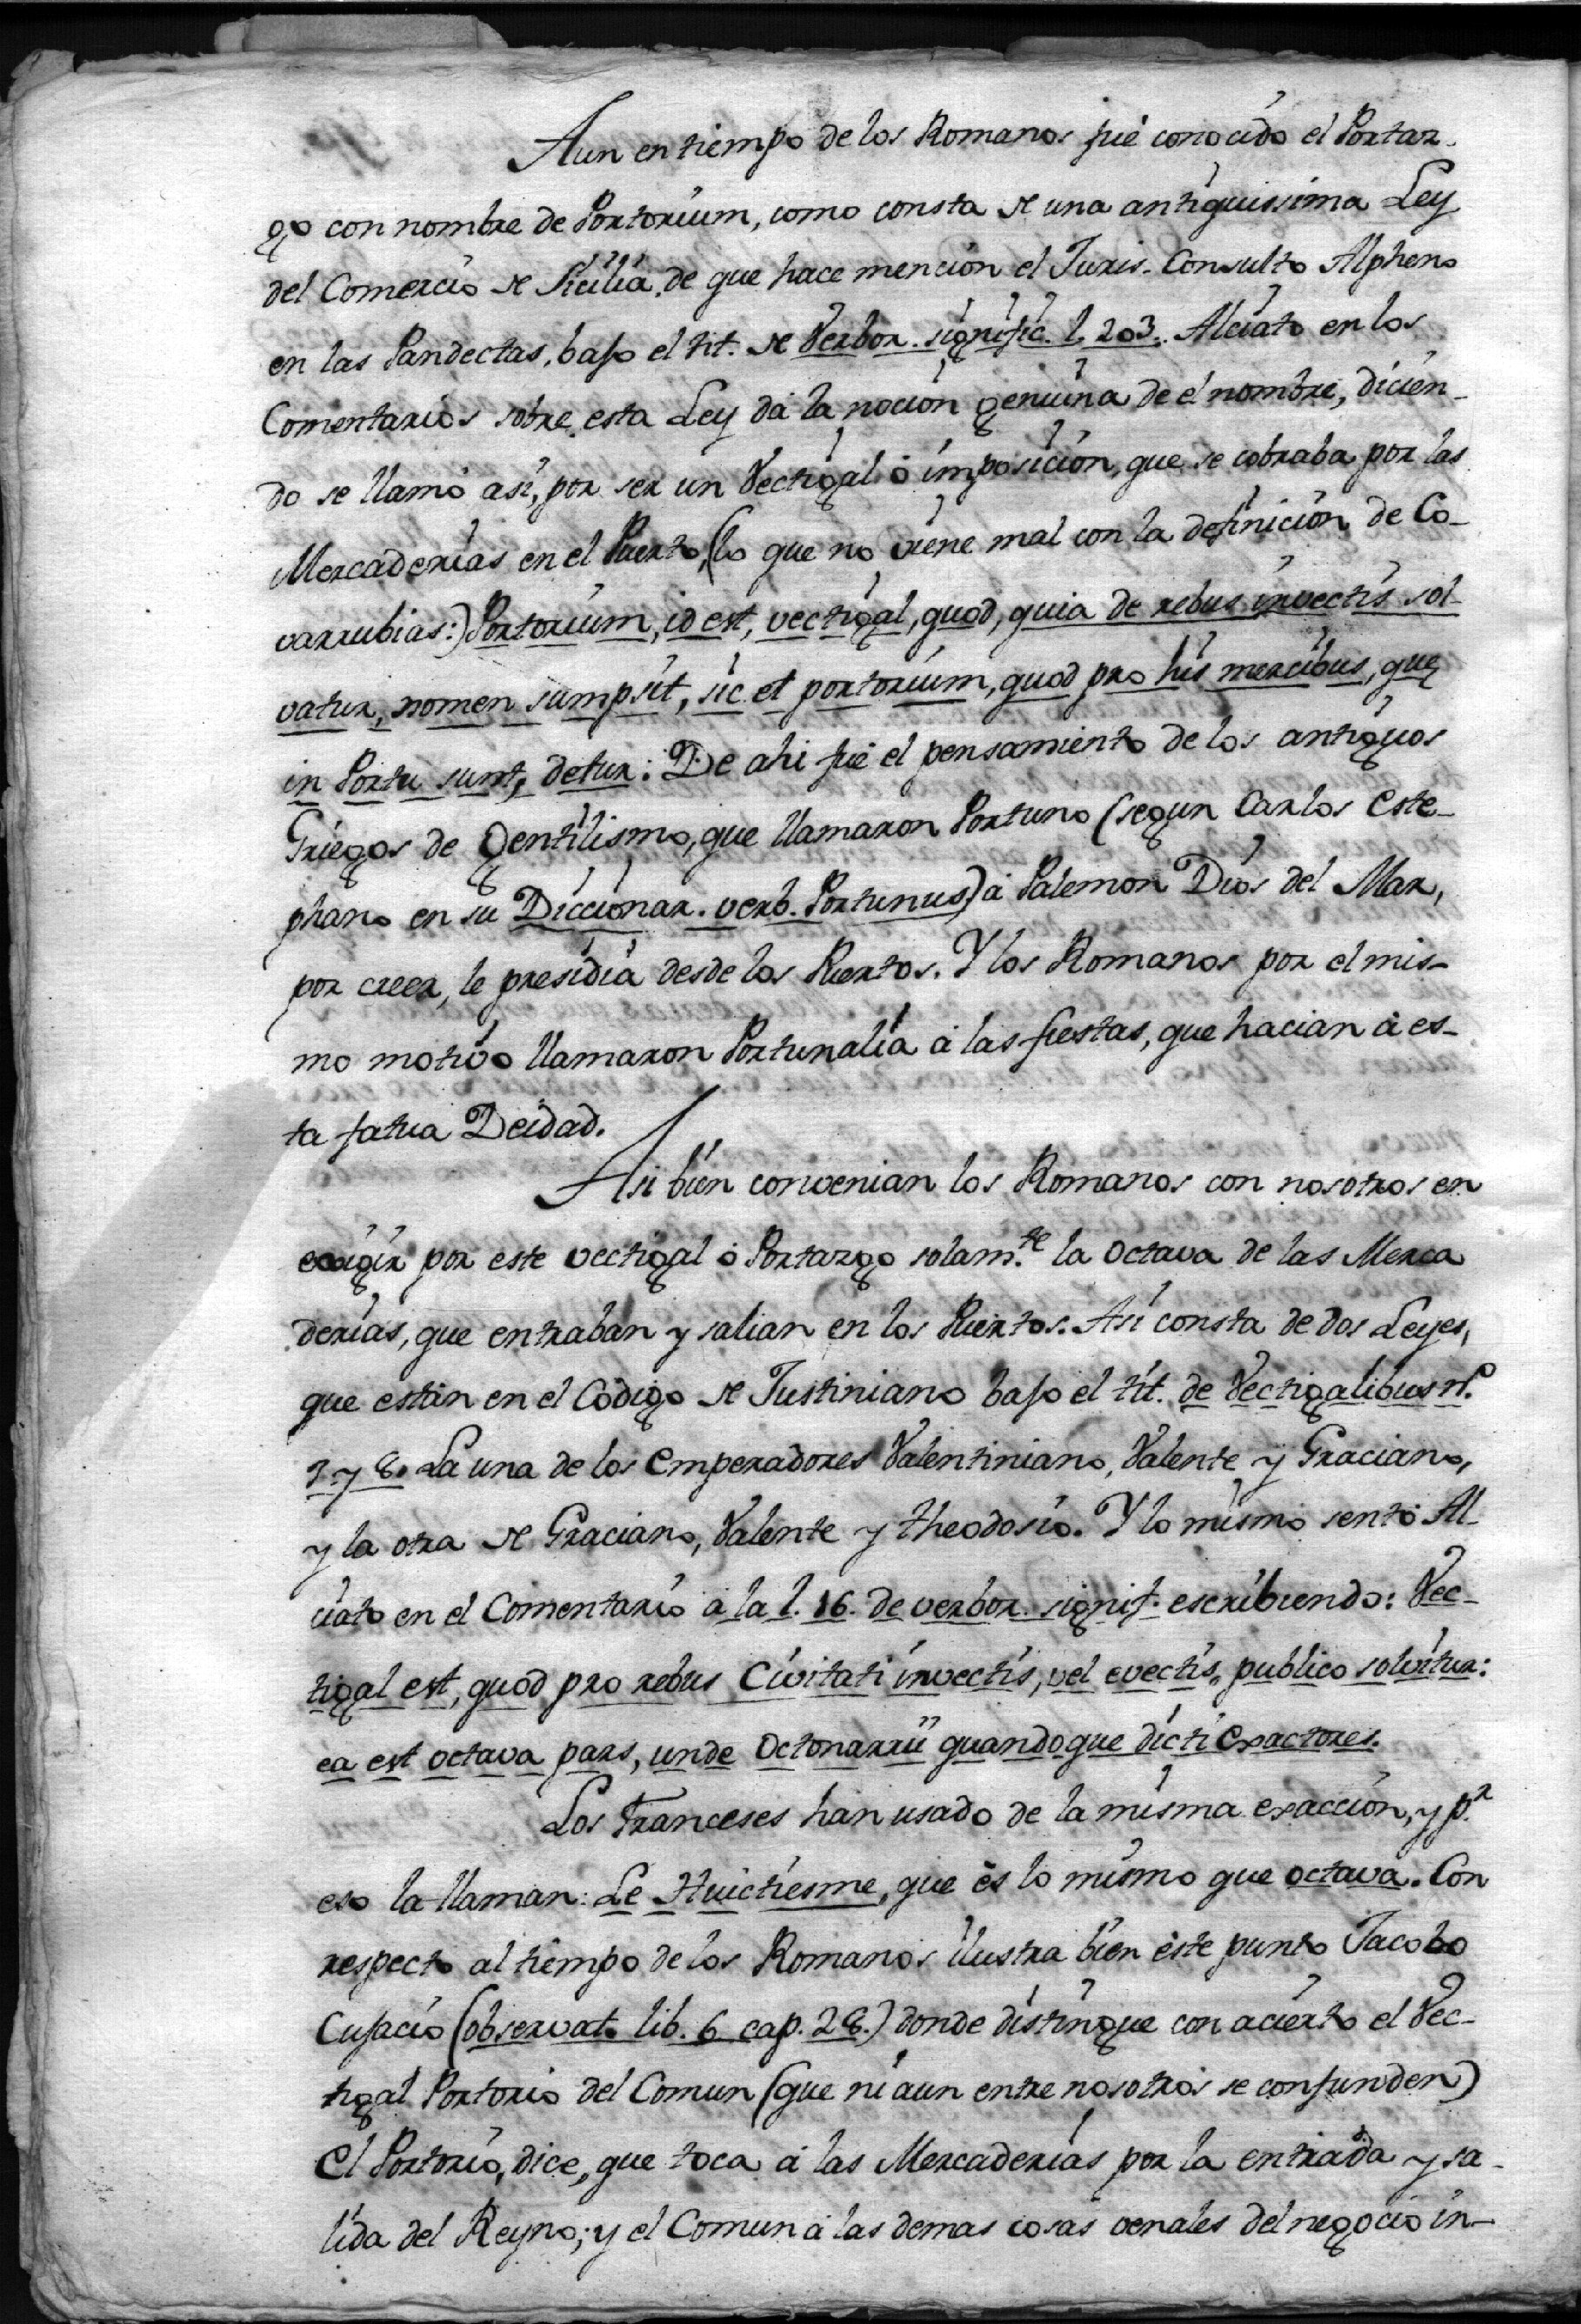 Aun en tiempo de los Romanos fué conocido el Portaz-
go con nombre de Portorium, como consta de una antiquissima Ley
del Comercio de Sicilia, de que hace mencion el Juris-Consulto Alpheno
en las Pandectas, bajo el tit. de Verbor. signific. l. 203. Alciato en los
Comentarios sobre esta Ley dá la nocion genuina de el nombre, dicien-
do se llamó asi, por ser un Vectigal ó imposicion, que se cobraba por las
Mercaderias en el Puerto, (lo que no viene mal con la definicion de Co-
varrubias:) Portorium, id est, vectigal, quod, quia de rebus invectis sol-
vatur, nomen sumpsit, sic et portorium, quod pro his mercibus, quę
in Portu sunt, detur: De ahi fué el pensamiento de los antiguos
Griegos de Gentilismo, que llamaron Portuno (segun Carlos Este-
phano en su Diccionar. verb. Portunus) á Palemon Dios del Mar,
por creer, le presidia desde los Puertos. Y los Romanos por el mis-
mo motivo llamaron Portunalia á las fiestas, que hacian á es-
ta fatua Deidad.
Asi bien convenian los Romanos con nosotros en
exigir por este vectigal ó Portazgo solam.te la octava de las Merca
derias, que entraban y salian en los Puertos. Asi consta de dos Leyes,
que están en el Código de Justiniano bajo el tit. de Vectigalibus n.º
7 y 8. La una de los Emperadores Valentiniano, Valente y Graciano,
y la otra de Graciano, Valente y Theodosio. Y lo mismo sentó Al-
ciato en el Comentario á la l. 16. de verbor. signif. escribiendo: Vec-
tigal est, quod pro rebus Civitati invectis, vel evectis, publico solvitur:
ea est octava pars, unde Octonarrii quandoque dicti Exactores.
Los Franceses han usado de la misma exaccion, y p.r
eso la llaman: Le Huictiesme, que és lo mismo que octava. Con
respecto al tiempo de los Romanos ilustra bien éste punto Jacobo
Cujacio (observat. lib. 6 cap. 28.) donde distingue con acierto el Vec-
tigal Portorio del Comun (que ni aun entre nosotros se confunden)
El Portorio, dice, que toca á las Mercaderias por la entrada y sa-
lida del Reyno; y el Comun á las demas cosas venales del negocio in-